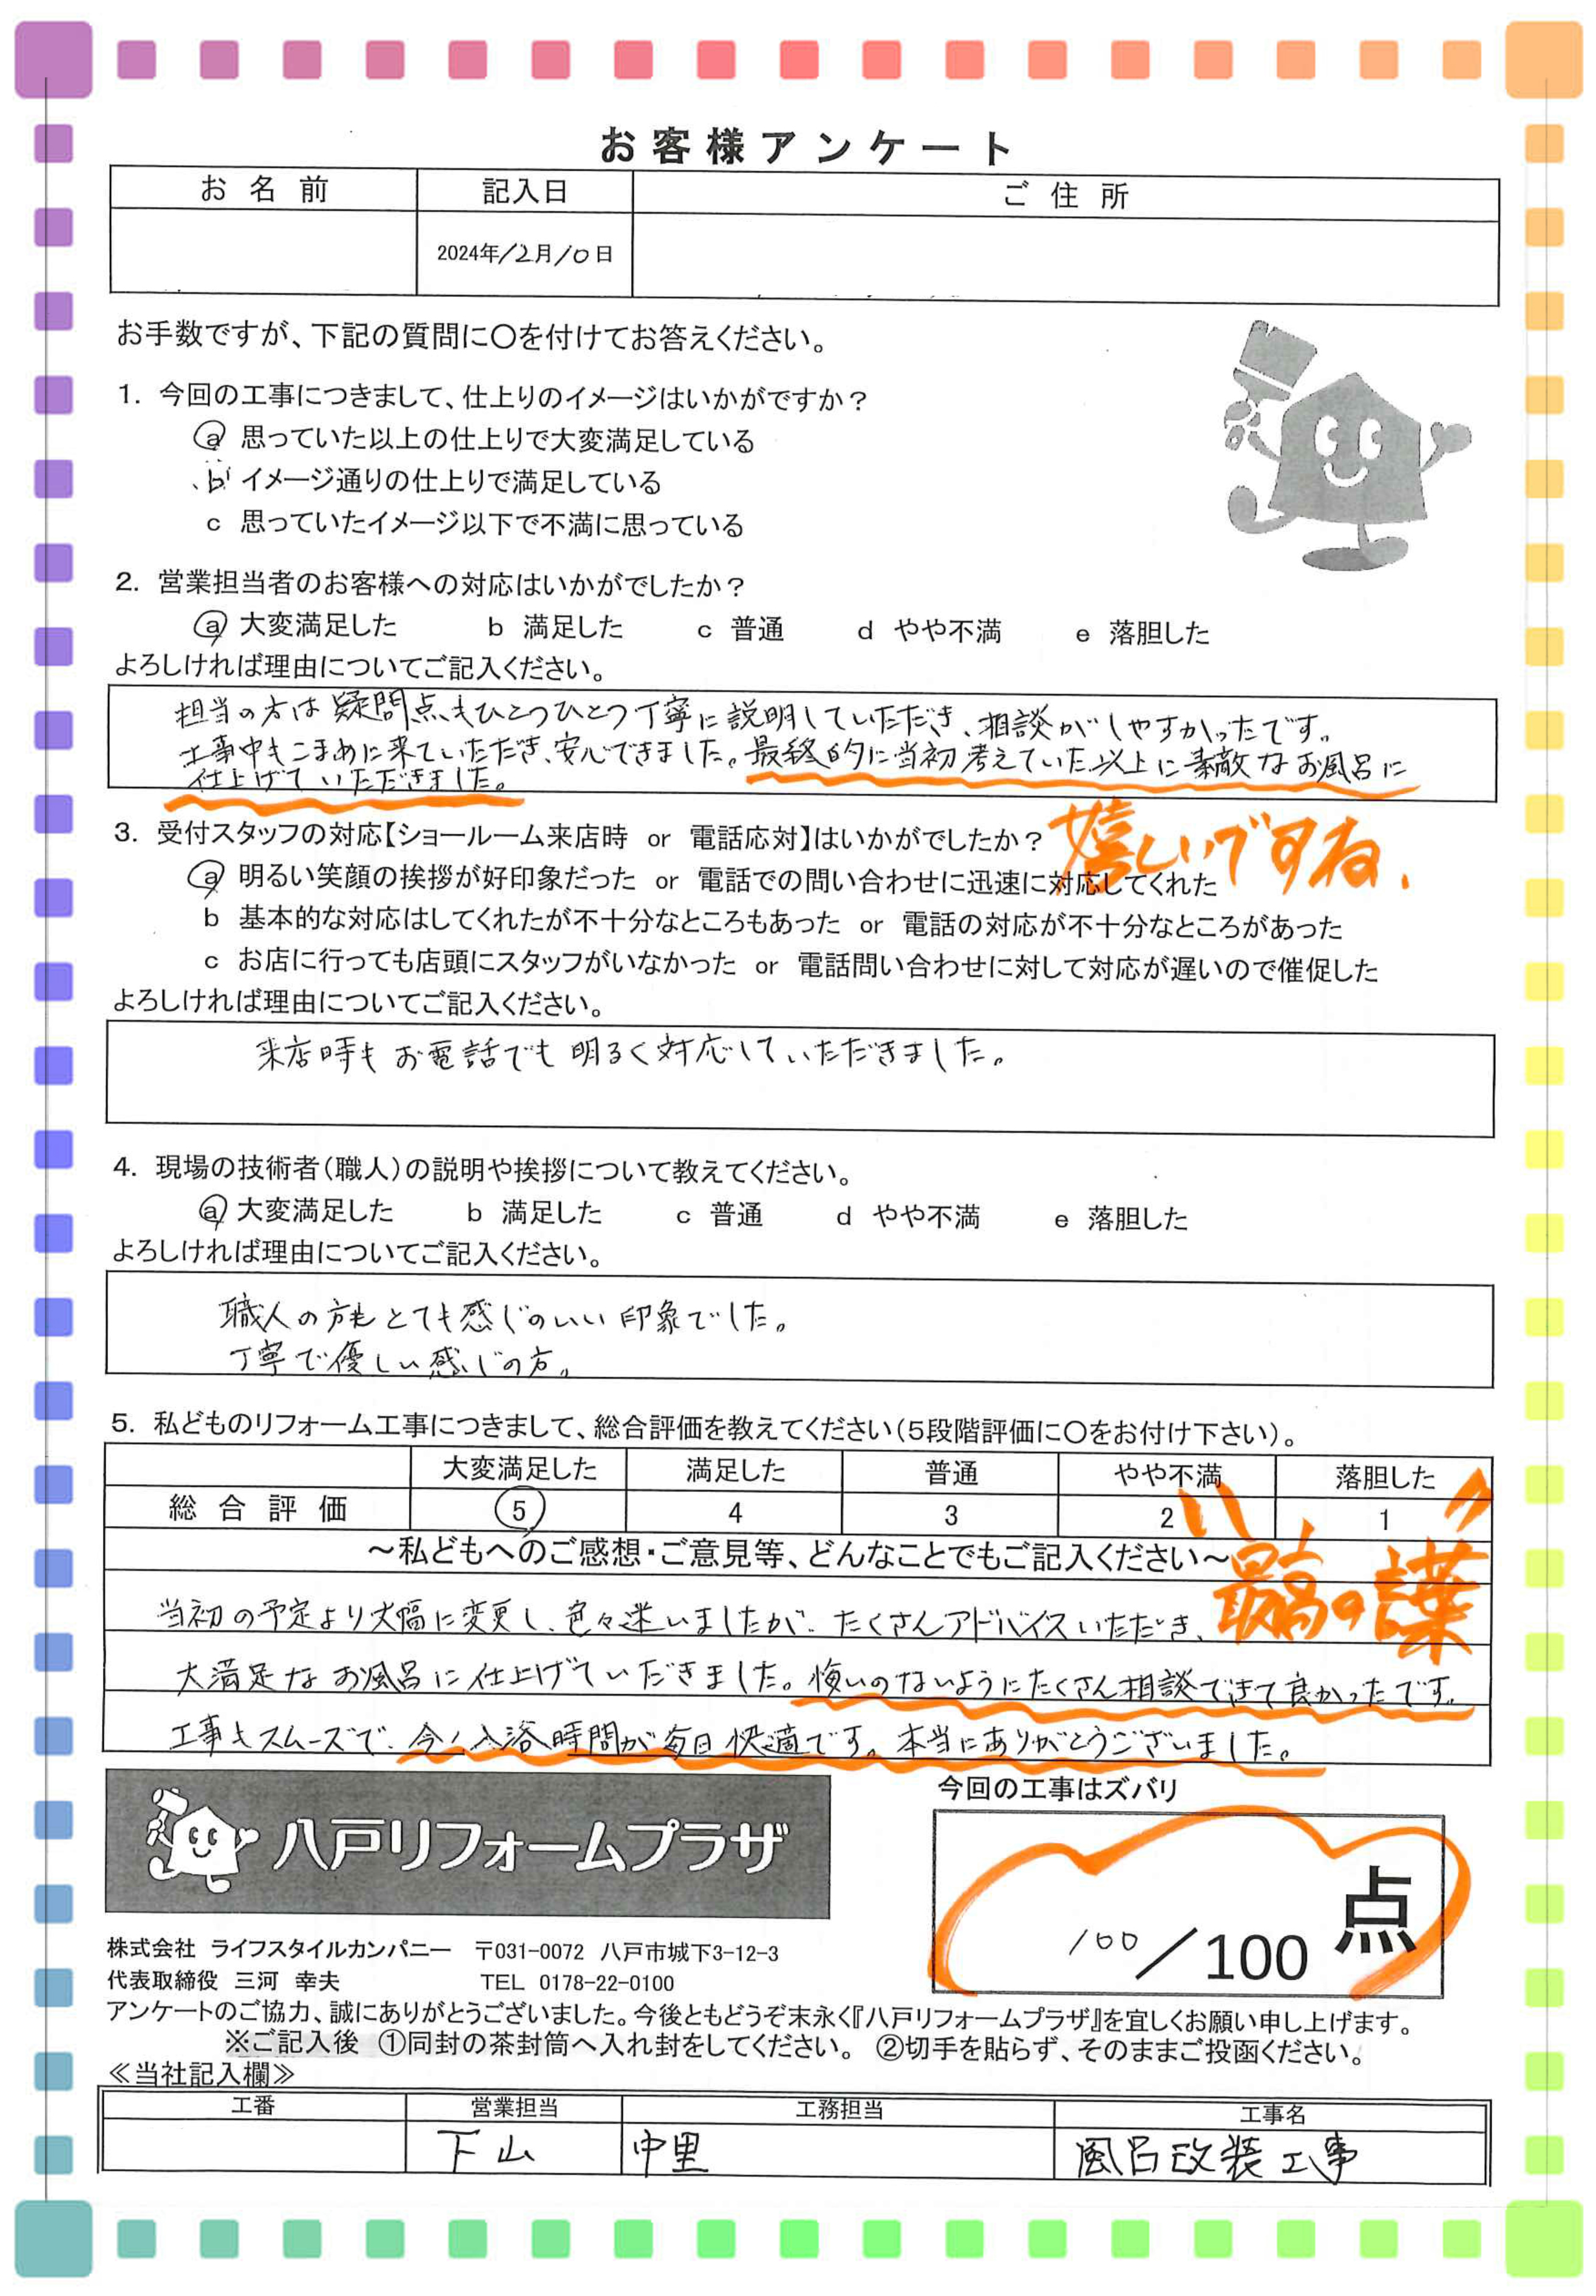 お客様アンケート
お名前 記入日 ご住所
2024年12月10日
お手数ですが、下記の質問に〇を付けてお答えください。
1. 今回の工事につきまして、仕上りのイメージはいかがですか?
a 思っていた以上の仕上りで大変満足している
b イメージ通りの仕上りで満足している
c 思っていたイメージ以下で不満に思っている
2. 営業担当者のお客様への対応はいかがでしたか?
a 大変満足した b 満足した c 普通 d やや不満 e 落胆した
よろしければ理由についてご記入ください。
担当の方は疑問点もひとつひとつ丁寧に説明していただき、相談がしやすかったです。
工事中もこまめに来ていただき、安心できました。最終的に当初考えていた以上に素敵なお風呂に
仕上げていただきました。
3. 受付スタッフの対応【ショールーム来店時 or 電話応対】はいかがでしたか?
嬉しいですね、
a 明るい笑顔の挨拶が好印象だった or 電話での問い合わせに迅速に対応してくれた
b 基本的な対応はしてくれたが不十分なところもあった or 電話の対応が不十分なところがあった
c お店に行っても店頭にスタッフがいなかった or 電話問い合わせに対して対応が遅いので催促した
よろしければ理由についてご記入ください。
来店時もお電話でも明るく対応していただきました。
4. 現場の技術者(職人)の説明や挨拶について教えてください。
a 大変満足した b 満足した c 普通 d やや不満 e 落胆した
よろしければ理由についてご記入ください。
職人の方もとても感じのいい印象でした。
丁寧で優しい感じの方。
5. 私どものリフォーム工事につきまして、総合評価を教えてください(5段階評価に〇をお付け下さい)。
大変満足した 満足した 普通 やや不満 落胆した
総合評価 5 4 3 2 1
~私どもへのご感想・ご意見等、どんなことでもご記入ください~
最高の言葉
当初の予定より大幅に変更し、色々迷いましたが、たくさんアドバイスいただき、
大満足なお風呂に仕上げていだきました。悔いのないようにたくさん相談できて良かったです。
工事もスムーズで、今、入浴時間が毎日快適です。本当にありがとうございました。
八戸リフォームプラザ
今回の工事はズバリ
100/100点
株式会社 ライフスタイルカンパニー 〒031-0072 八戸市城下3-12-3
代表取締役 三河 幸夫 TEL 0178-22-0100
アンケートのご協力、誠にありがとうございました。今後ともどうぞ末永く『八戸リフォームプラザ』を宜しくお願い申し上げます。
※ご記入後 ①同封の茶封筒へ入れ封をしてください。 ②切手を貼らず、そのままご投函ください。
≪当社記入欄≫
工番 営業担当 工務担当 工事名
下山 中里 風呂改装工事